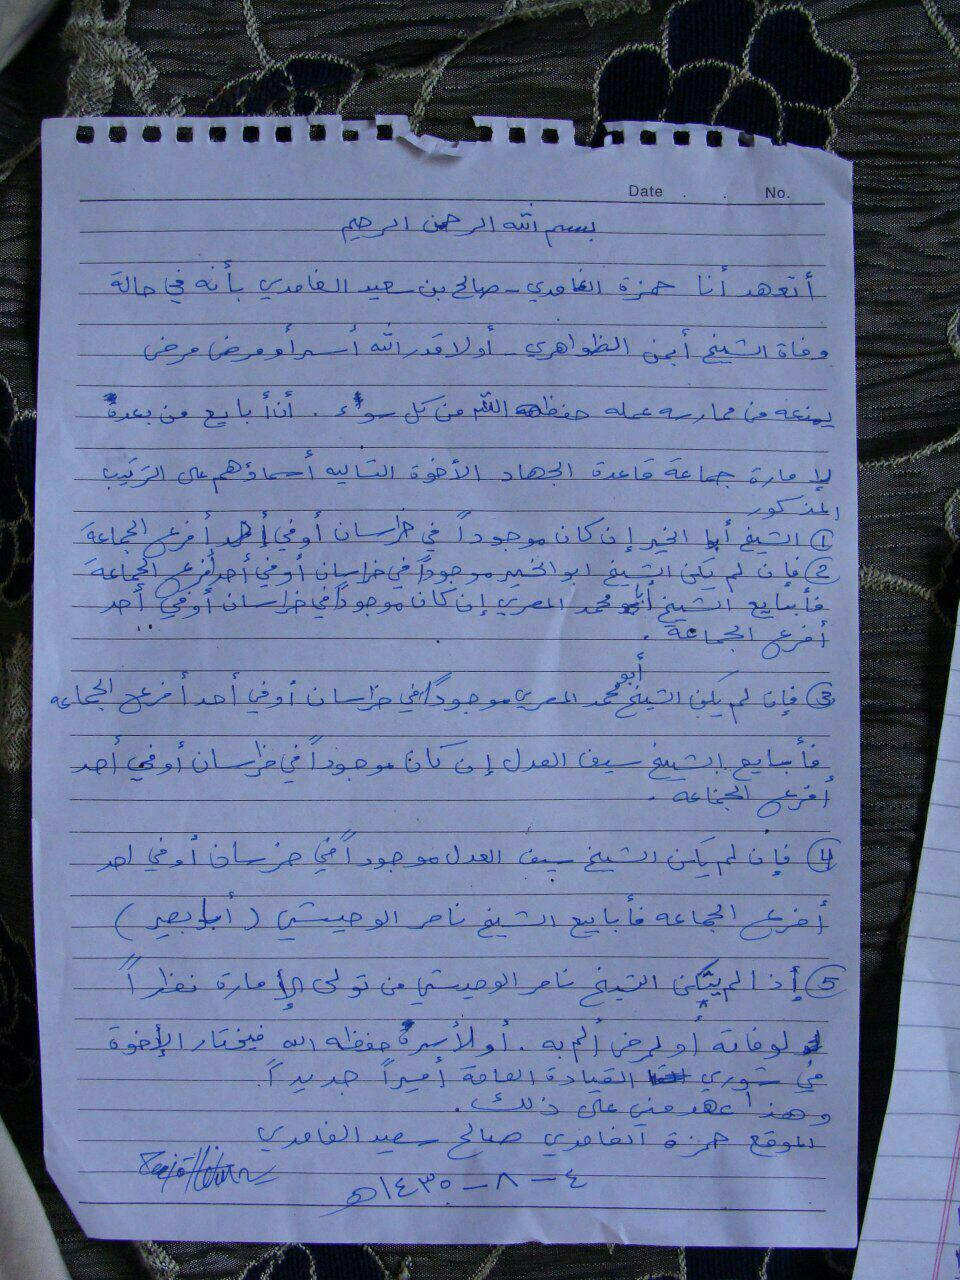 Date . . No.
بسم الله الرحمن الرحيم
أتعهد أنا حمزة الغامدي - صالح بن سعيد الغامدي بأنه في حالة
وفاة الشيخ أيمن الظواهري - أو لا قدر الله أسر أو مرض مرض
يمنعه من ممارسه عمله حفظه الله من كل سوء . أن أبايع من بعده
لإمارة جماعة قاعدة الجهاد الأخوة التاليه أسماؤهم على الترتيب
المذكور
① الشيخ أبا الخير إن كان موجوداً في خراسان أو في أحد أفرع الجماعة
② فإن لم يكن الشيخ ابو الخير موجوداً في خراسان أو في أحد أفرع الجماعة
فأبايع الشيخ أبو محمد المصري إن كان موجوداً في خراسان أو في أحد
أفرع الجماعة .
③ فإن لم يكن الشيخ أبو محمد المصري موجوداً في خراسان أو في أحد أفرع الجماعه
فأبايع الشيخ سيف العدل إن كان موجوداً في خراسان أو في أحد
أفرع الجماعه .
④ فإن لم يكن الشيخ سيف العدل موجوداً في خراسان أو في احد
أفرع الجماعه فأبايع الشيخ ناصر الوحيشي ( أبا بصير )
⑤ إذا لم يتمكن الشيخ ناصر الوحيشي من تولى الإمارة نظراً
لوفاته أو لمرض ألم به . أو لأسره حفظه الله فيختار الإخوة
في شورى القيادة العامة أميراً جديداً .
وهذا عهد مني على ذلك .
الموقع حمزة الغامدي صالح سعيد الغامدي
٤ - ٨ - ١٤٣٠هـ